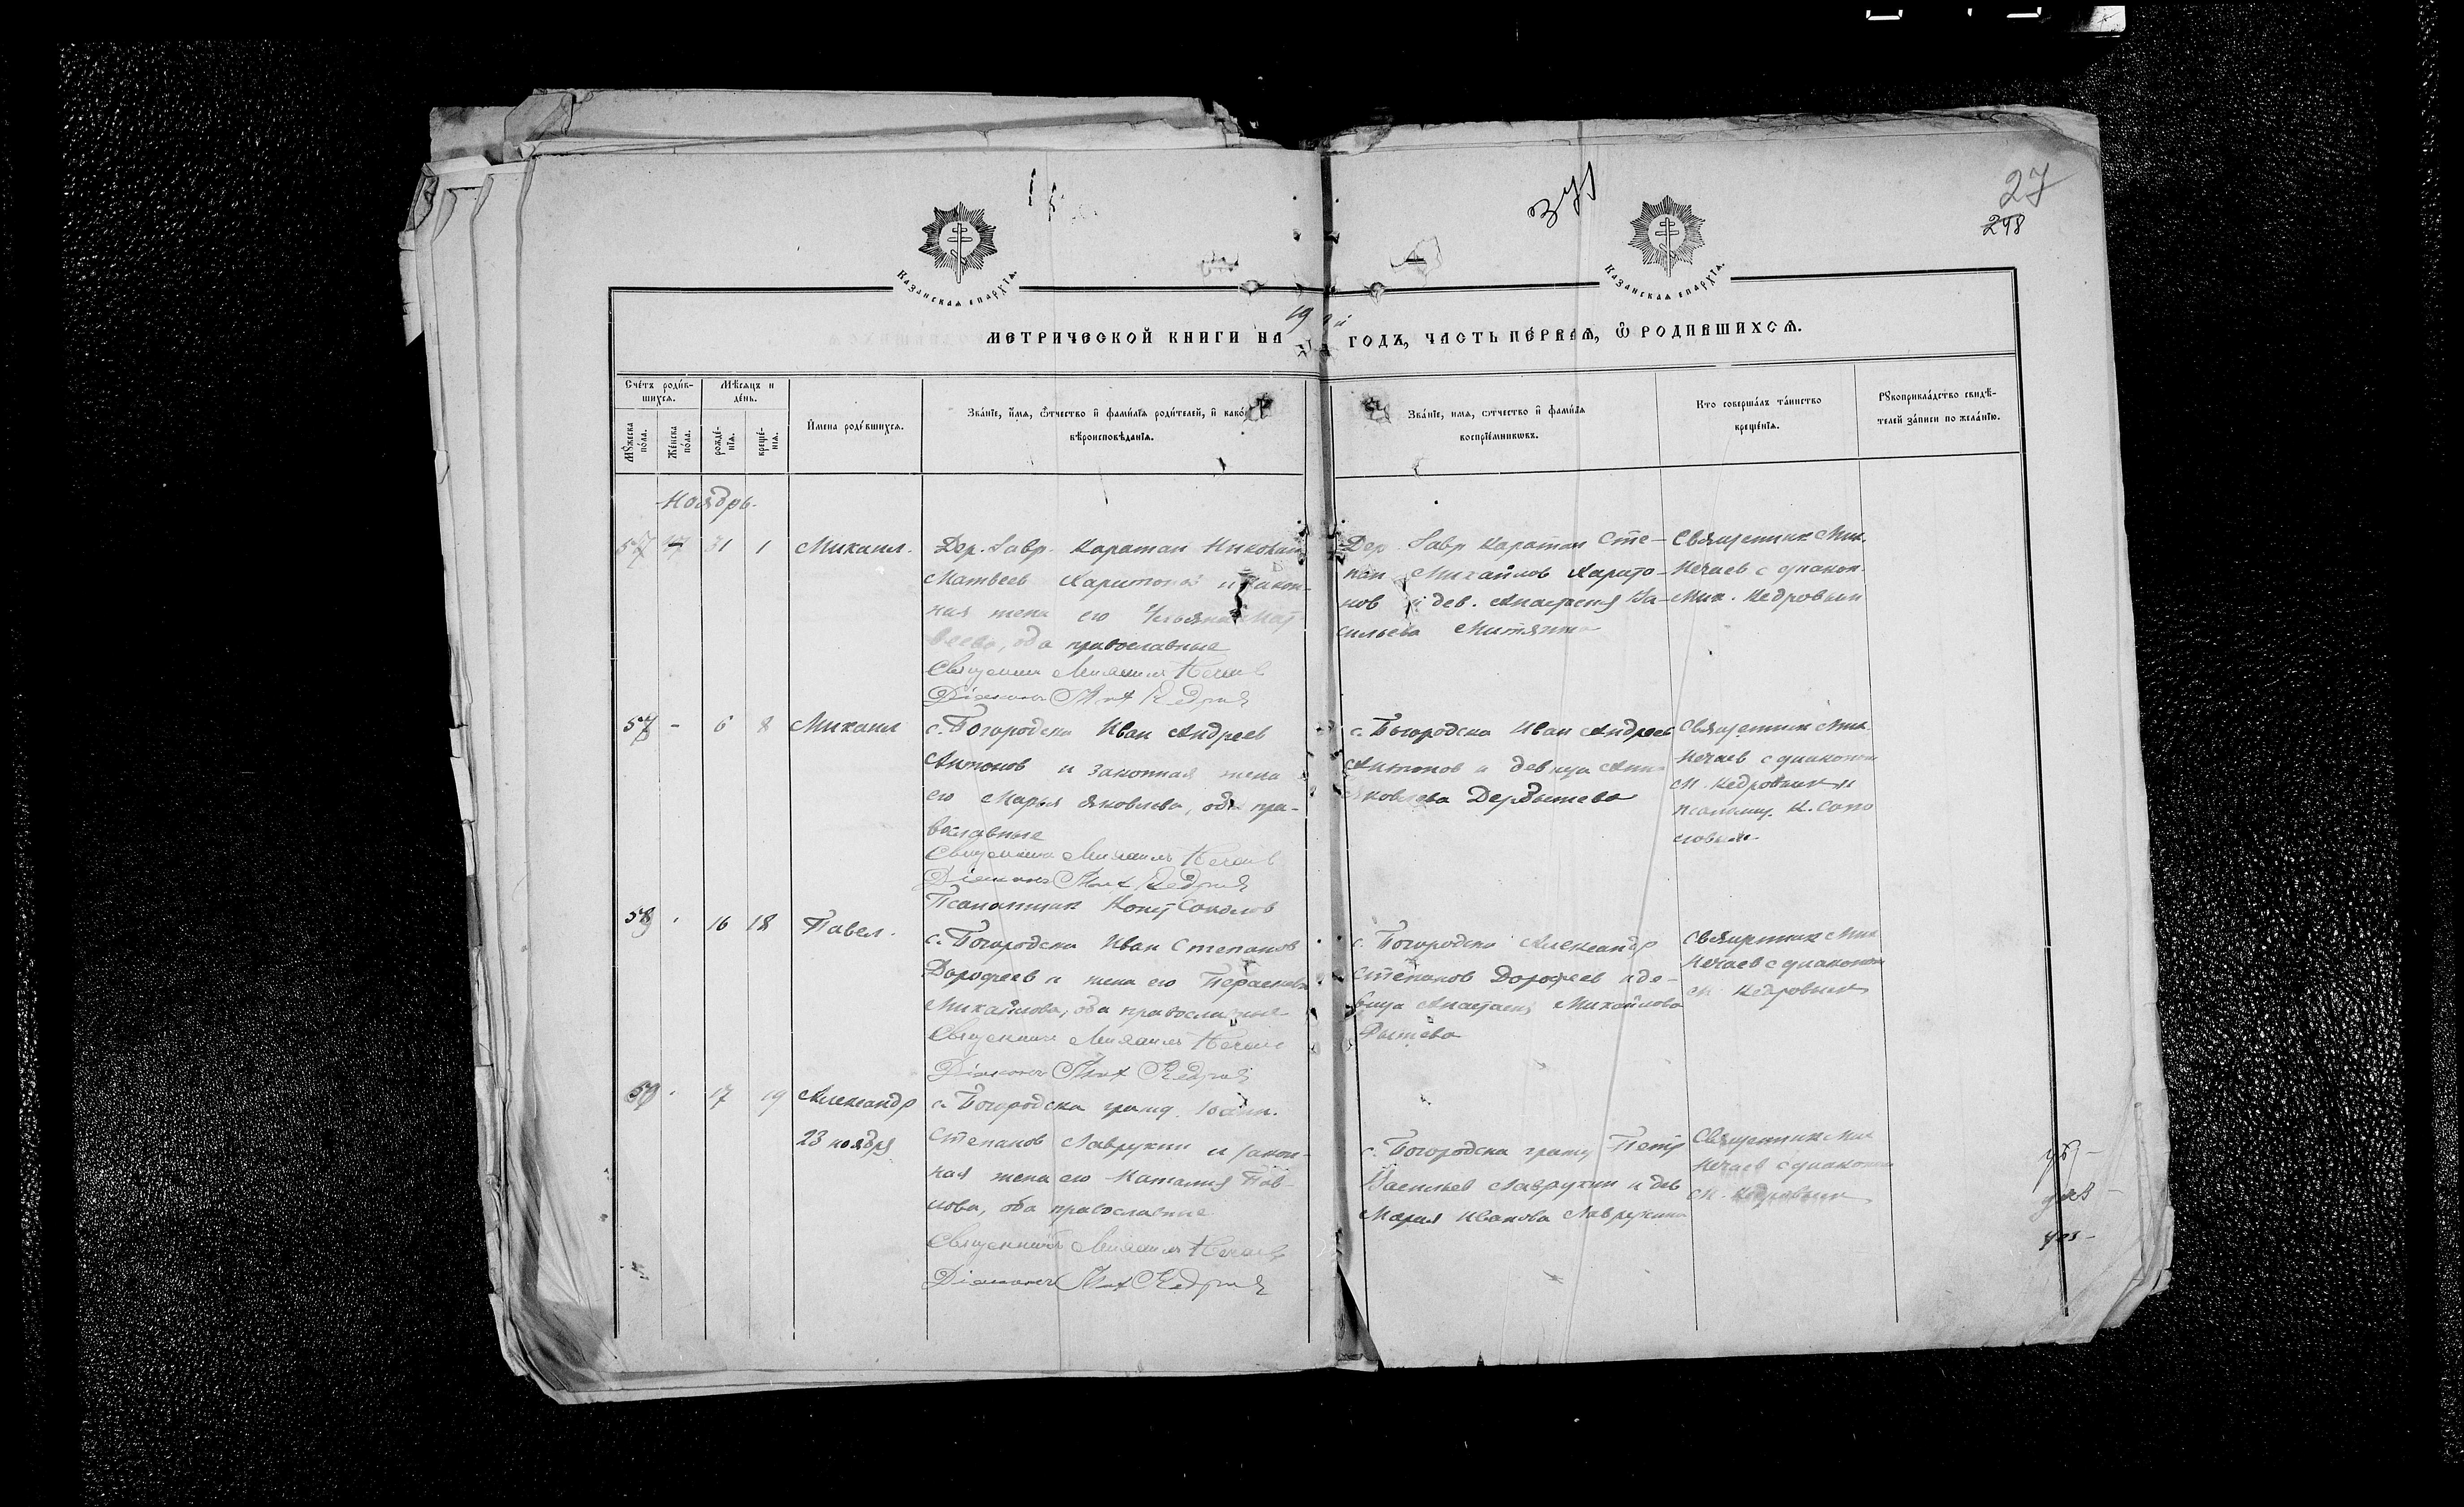 27
298
КАЗАНСКАѦ ЕПАРХІѦ.
КАЗАНСКАѦ ЕПАРХІѦ.
МЕТРИЧЕСКОЙ КНИГИ НА 19 ГОДЪ, ЧАСТЬ ПЕ́РВАѦ, Ѽ РОДИВШИХСѦ.
Сче́тъ роди́в-
шихсѧ.
Мѣ́сѧцъ и
де́нь.
Мꙋ́жеска
по́ла.
Же́нска
по́ла.
рожде́-
нїѧ.
креще́-
нїѧ.
И҆мена роди́вшихсѧ.
Зва́нїе, и҆́мѧ, ѻ҆́тчество и҆ фами́лїѧ роди́телей, и҆ како́
вѣроисповѣ́данїѧ.
Зва́нїе, имѧ, ѻтчество и҆ фами́лїѧ
воспрїе́мникѡвъ.
Кто соверша́лъ та́инство
креще́нїѧ.
Рꙋкоприкла́дство свидѣ́-
телей за́писи по жела́нїю.
Ноябрь.
31 1 Михаил.
Дер. Кавр. Каратаи Николай
Матвеев Харитонов и закон-
ная жена его Ульяна Мат
веева, оба православные
Священник Михаил Нечаев
Дiаконъ Кедров
Дер. Каратаи Сте-
пан Михайлов Харито-
нов и дев. Анастасия Ва-
сильева
Священник Мих.
Нечаев с диакон.
Мих. Кедровым
57 - 6 8 Михаил
с. Богородска Иван Андреев
Антонов и законная жена
его Марья Яковлева, оба пра-
вославные
Священник Михаил Нечаев
Дiаконъ Кедров
Псаломщик Конст Соколов
с. Богородска Иван Андреев
Антонов и девица Анна
Яковлева
Священник Мих.
Нечаев с диаконом
М. Кедровым и
псаломщ. К. Соко
ловым
58 16 18 Павел.
с. Богородска Иван Степанов
Дорофеев и жена его Параскева
Михайлова, оба православные
Священник Михаил Нечаев
Дiаконъ Кедров
с. Богородска Александр
Степанов Дорофеев и де-
вица Анастасия Михайлова
Священник Мих
Нечаев с диаконом
М. Кедровым
59 17 19 Александр
23 ноября
с. Богородска гражд. Иоанн.
Степанов Лаврухин и закон-
ная жена его Наталия Пав-
лова, оба православные
Священникъ Михаил Нечаев
Дiаконъ Кедров
с. Богородска гражд Петр
Васильев Лаврухин и дев
Мария Иванова Лаврухина
Священник Мих
Нечаев с диаконом
М. Кедровым